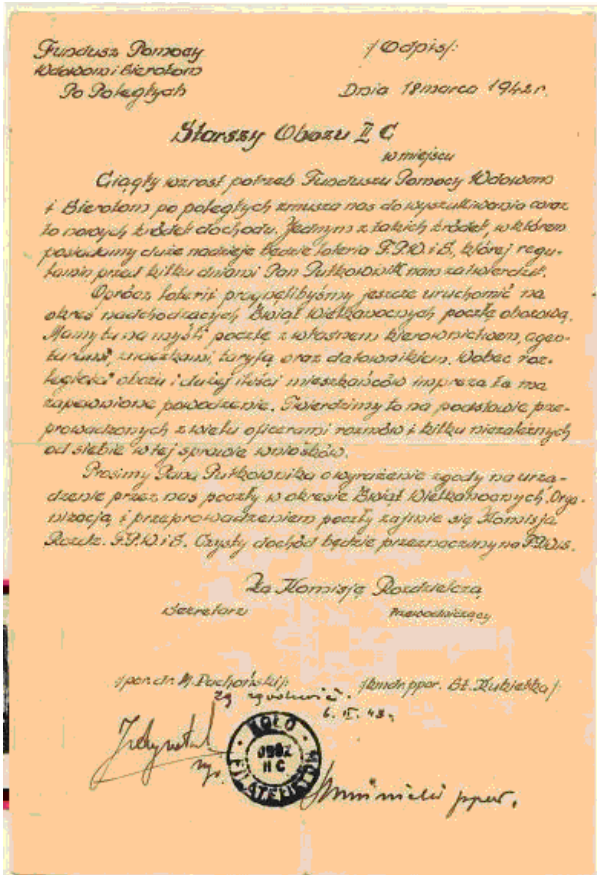 Fundusz Pomocy
Wdowom i Sierotom
Po Poległych
/Odpis/:
Dnia 18 marca 1942 r.
Starszy Obozu II C
w miejscu
Ciągły wzrost potrzeb Funduszu Pomocy Wdowom
i Sierotom po poległych zmusza nas do wyszukiwania coraz
to nowych źródeł dochodu. Jednym z takich źródeł, w którem
posiadamy duże nadzieje będzie loteria F.P.W.i S., której regu-
lamin przed kilku dniami Pan Pułkownik nam zatwierdził.
Oprócz loterii pragnęlibyśmy jeszcze uruchomić na
okres nadchodzących Świąt Wielkanocnych pocztę obozową.
Mamy tu na myśli pocztę z własnem kierownictwem, agen-
turami, znaczkami, taryfą oraz datownikiem. Wobec roz-
ległości obozu i dużej ilości mieszkańców impreza ta ma
zapewnione powodzenie. Twierdzimy to na podstawie prze-
prowadzonych z wielu oficerami rozmów i kilku niezależnych
od siebie w tej sprawie wniosków.
Prosimy Pana Pułkownika o wyrażenie zgody na urzą-
dzenie przez nas poczty w okresie Świąt Wielkanocnych. Orga-
nizacją i przeprowadzeniem poczty zajmie się Komisja
Rozdz. F.P.W.i S. Czysty dochód będzie przeznaczony na F.P.W.i S.
Za Komisję Rozdzielczą
Sekretarz Przewodniczący
/por. dr. M. Pachoński/: /kmdr. ppor. St. Kubiczka/:
za zgodność
KOŁO
OFLAG
II C
FILATELISTÓW
ppor.